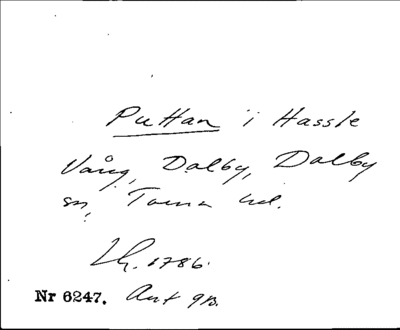 Puttan i Hassle
Vång, Dalby, Dalby
sn, Torna hd.
Lh. 1786.
Nr 6247. Avt 9B.